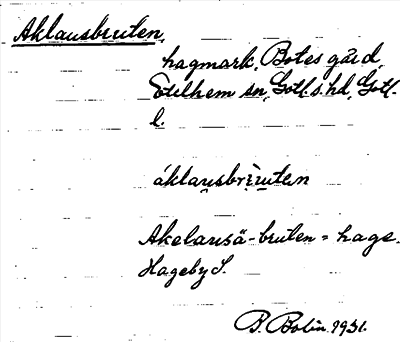 Aklausbruten,
hagmark, Botes gård,
Etelhem sn, Gotl. s. hd, Gotl.
l.
áklausbrùuten
Akelausä-bruten = hage.
Hageby S.
B. Bolin 1931.